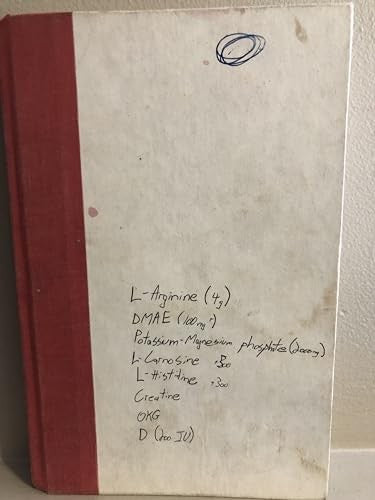 L-Arginine (4g)
DMAE (100mg)
Potassium-Magnesium phosphate (2000mg)
L-Carnosine
L-Histidine .300
Creatine
OKG
D (200 IU)